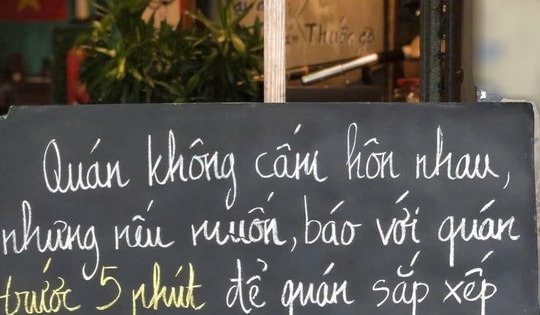 Thuốc
Quán không cấm hôn nhau,
nhưng nếu muốn, báo với quán
trước 5 phút để quán sắp xếp